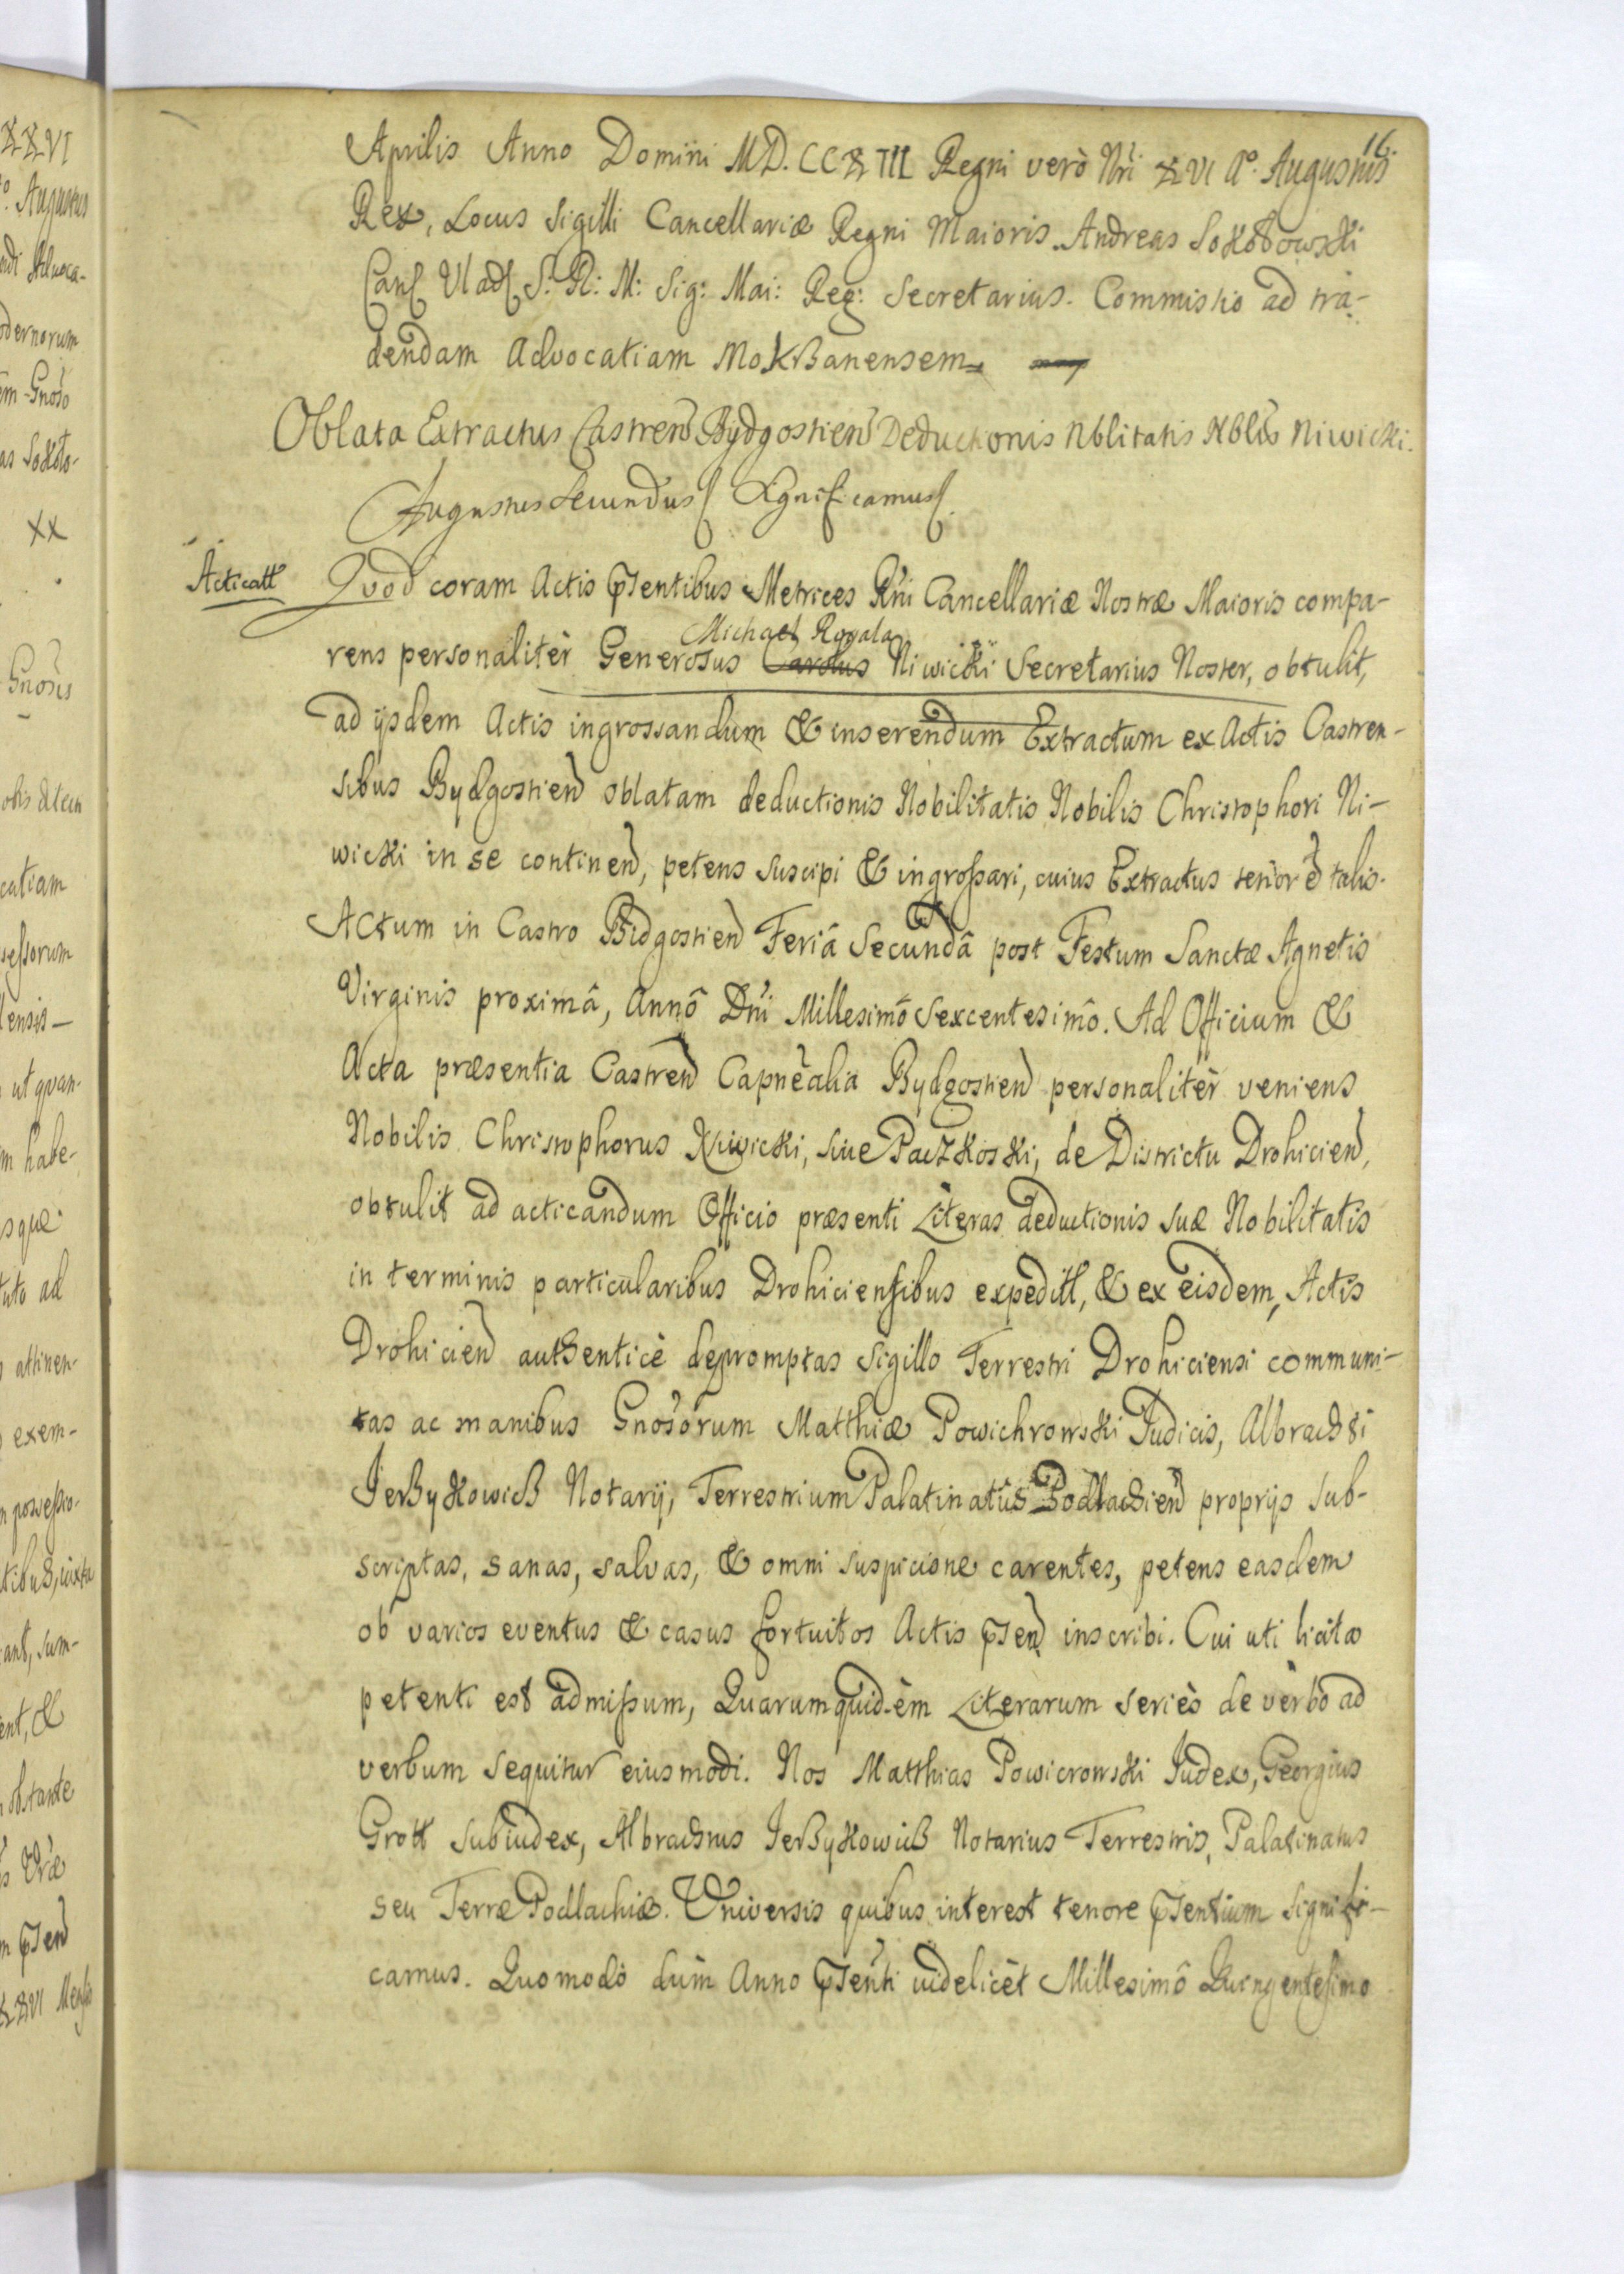 16.
Aprilis Anno Domini MD.CCXIII Regni verò Nri XVI Aº. Augustus
Rex, Locus Sigilli Cancellariæ Regni Maioris. Andreas Sokołowski
Can Vlad S: R: M: Sig: Mai: Reg: Secretarius. Commissio ad tra-
dendam Advocatiam Mokßanensem
Oblata Extractus Castren Bydgostien Deductionis Nblitatis Nblis Niwicki.
Augustus Secundus Significamus
Acticatt
Quod coram Actis pntibus Metrices Rni Cancellariæ Nostræ Maioris compa-
Michael Rogala
rens personalitèr Generosus Carolus Niwicki Secretarius Noster, obtulit,
ad ijsdem Actis ingrossandum & inserendum Extractum ex Actis Castren-
sibus Bydgostien oblatam deductionis Nobilitatis Nobilis Christophori Ni-
wicki in se continen, petens suscipi & ingrossari, cuius Extractus tenor e talis.
Actum in Castro Bidgostien Feriâ Secundâ post Festum Sanctæ Agnetis
Virginis proximâ, Annô Dni Millesimô Sexcentesimô. Ad Officium &
Acta præsentia Castren Capnealia Bydgostien personalitèr veniens
Nobilis Christophorus Niwicki, siue Paczkoski, de Districtu Drohicien,
obtulit ad acticandum Officio præsenti Literas deductionis suæ Nobilitatis
in terminis particularibus Drohiciensibus expeditt, & ex eisdem, Actis
Drohicien authenticè depromptas Sigillo Terrestri Drohiciensi communi-
tas ac manibus Gnosorum Matthiæ Powichrowski Judicis, Albrachti
Jerßykowicß Notarij, Terrestrium Palatinatûs Podlachien proprijs sub-
scriptas, sanas, salvas, & omni suspicione carentes, petens easdem
ob varios eventus & casus fortuitos Actis pnen inscribi. Cui uti licitæ
petenti est admissum, Quarumquidem Literarum seriès de verbo ad
verbum sequitur eiusmodi. Nos Matthias Powicrowski Judex, Georgius
Grott Subiudex, Albrachtus Jerßykowicß Notarius Terrestris, Palatinatus
seu Terræ Podlachiæ. Universis quibus interest tenore pntium signifi-
camus. Quomodò dùm Anno pnti uidelicèt Millesimô Quingentesimo